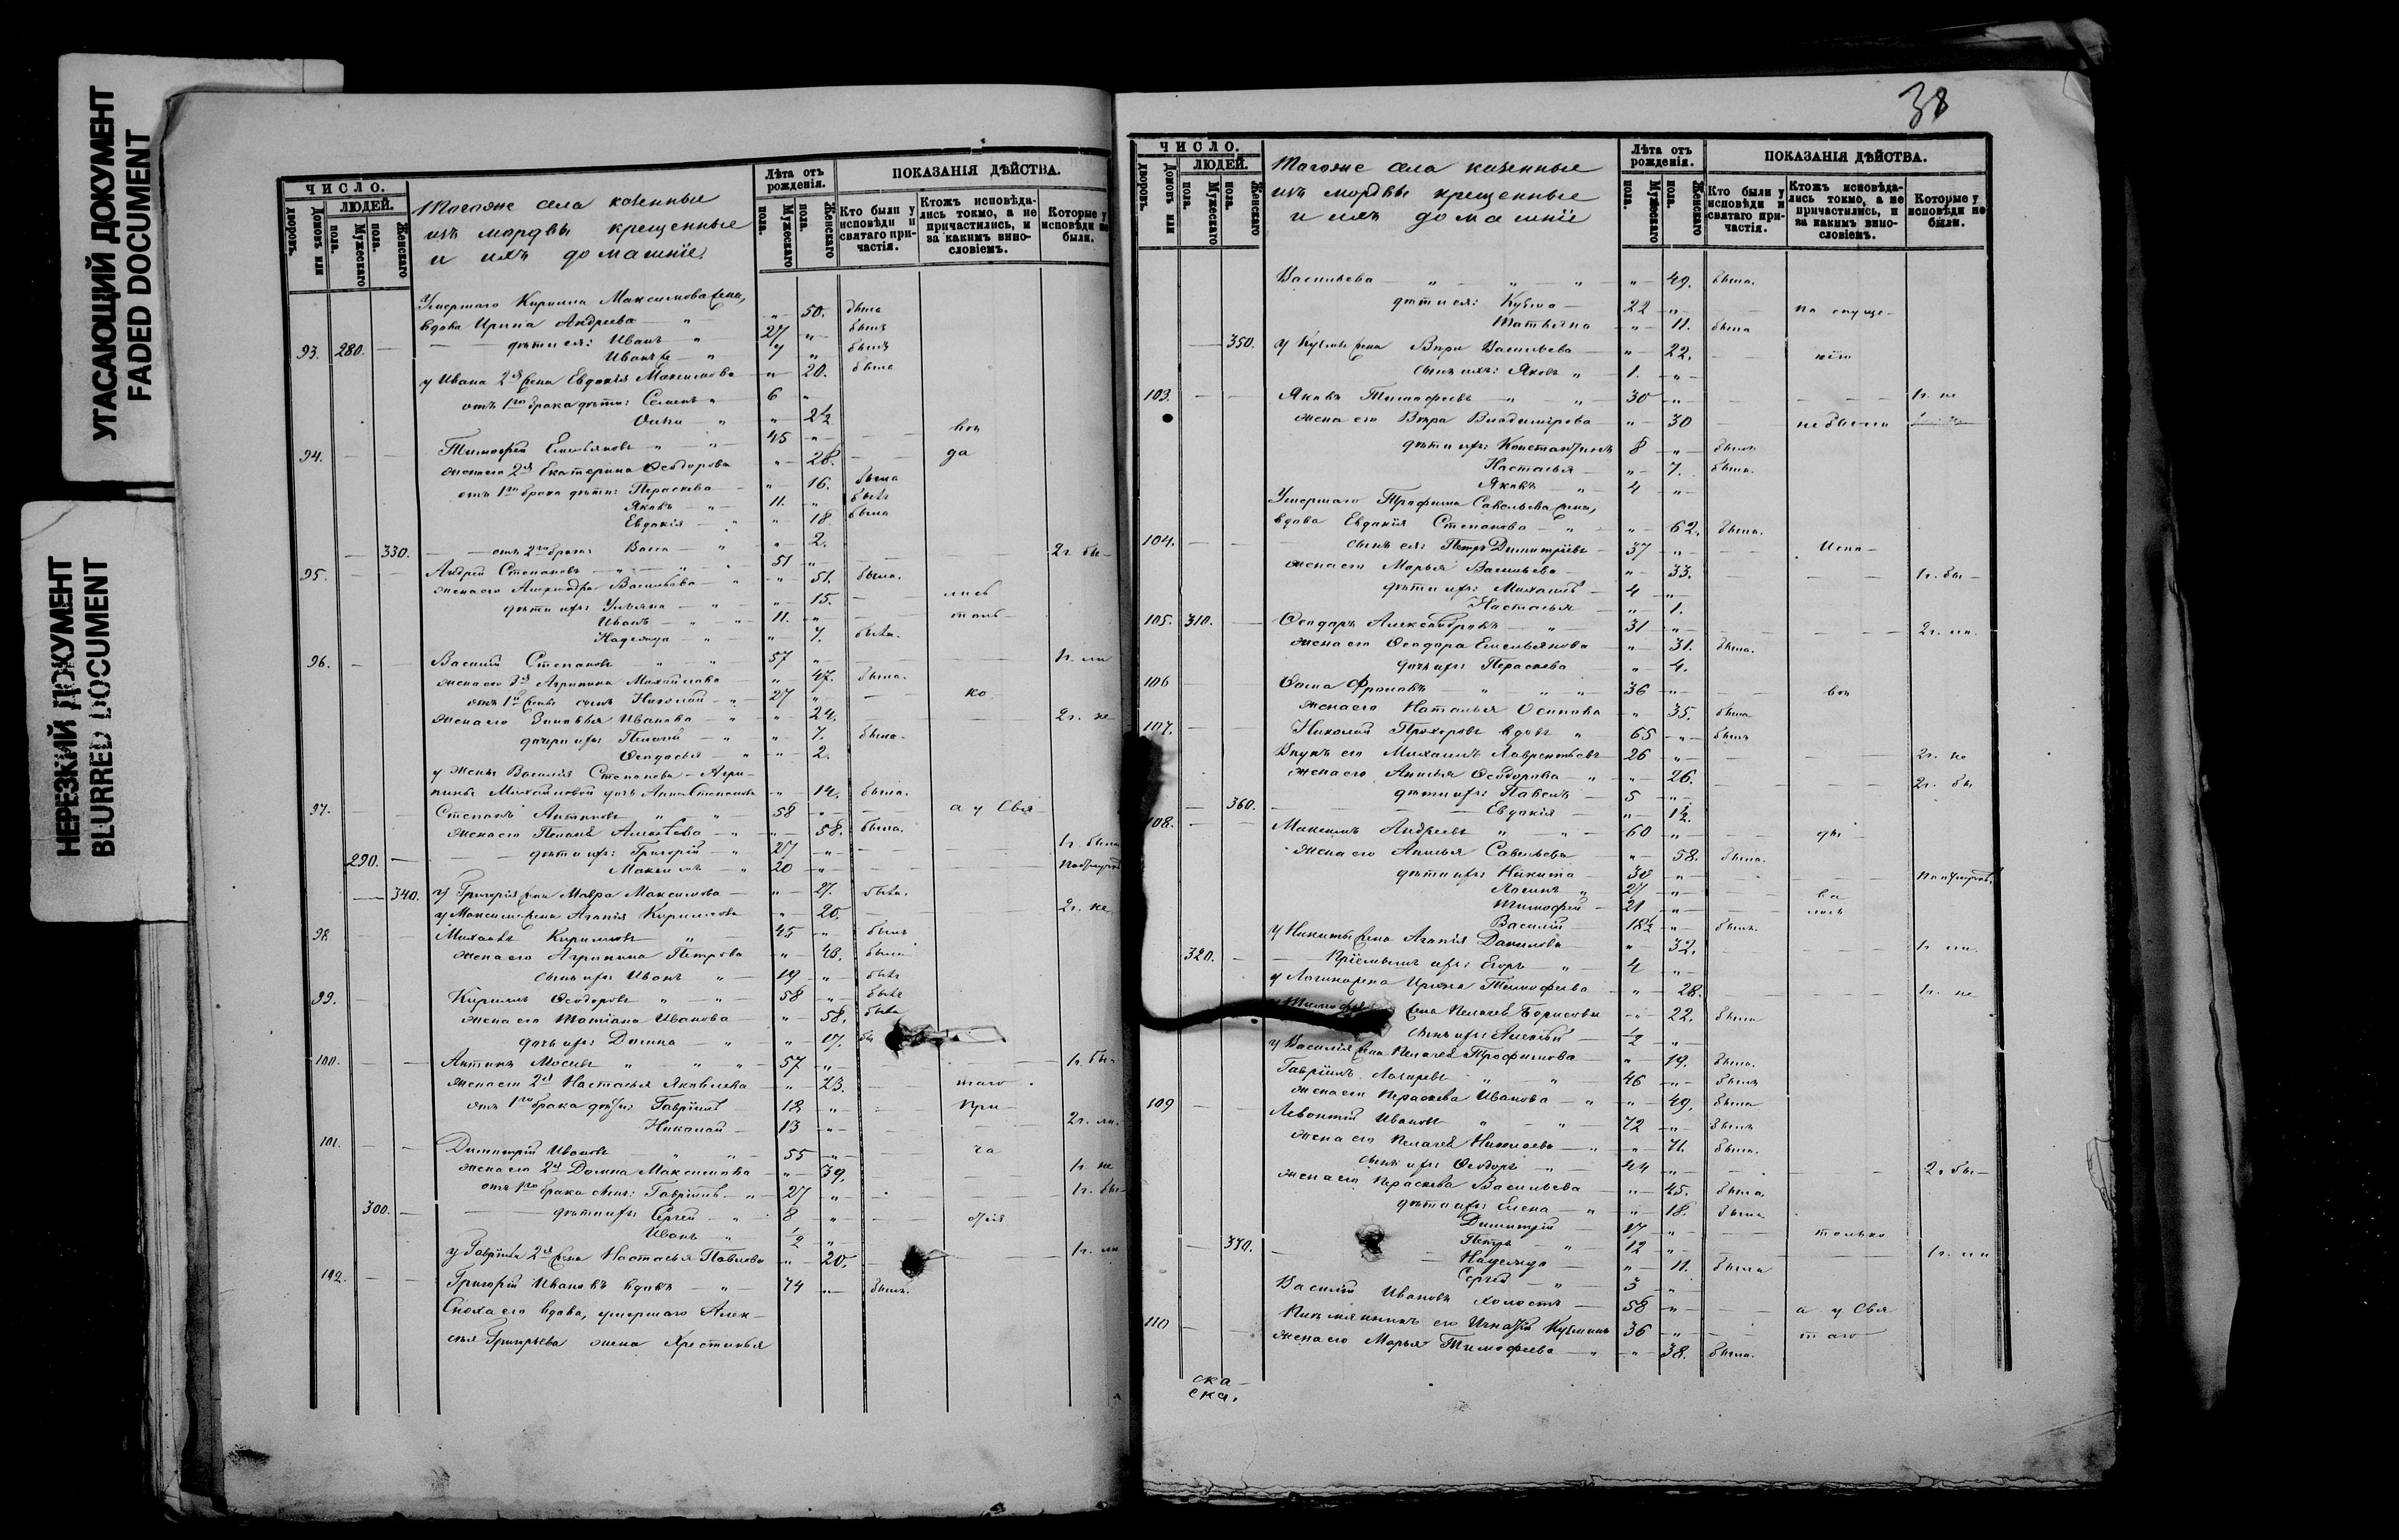 УГАСАЮЩИЙ ДОКУМЕНТ
FADED DOCUMENT
НЕРЕЗКИЙ ДОКУМЕНТ
BLURRED DOCUMENT
ЧИСЛО.
ЛЮДЕЙ.
Домовъ или дворовъ.
Мужескаго пола.
Женскаго пола.
Тогоже села казенные
изъ мордвы крещенные
и ихъ домашніе
Лѣта отъ рожденія.
Мужескаго пола.
Женскаго пола.
ПОКАЗАНІЯ ДѢЙСТВА.
Кто были у исповѣди и святаго причастія.
Ктожъ исповѣдались токмо, а не причастились, и за какимъ винословіемъ.
Которые у исповѣди не были.
Умершаго Кирилла Максимова жена,
вдова Ирина Андреева 50. была
93. 280. дѣти ея: Иванъ 27 былъ
Иванъ 7 былъ
у Ивана 2я жена Евдокія Максимова 20. была
отъ 1го брака дѣти: Семенъ 6
2½
94. Тимофей Емельяновъ 45
жена его 2я Екатерина Ѳеодорова 28. да
отъ 1го брака дѣти: Параскева 16. была
Яковъ 11. былъ
Евдокія 18. была
330. отъ 2го брака: Васса 2.
95. Андрей Степановъ 51 2г. бы-
жена его Александра Васильева 51. была.
дѣти ихъ: Ульяна 15. лись
Иванъ 11. толь-
Надежда 7. была.
96. Василій Степановъ 57
жена его 3я Агрипина Михайлова 47. была.
отъ 1й жены сынъ Николай 27 ко
жена его Зиновья Иванова 24. 2г. не
дочери ихъ: Пелагія 7. была.
Ѳеодосья 2.
у жены Василія Степанова – Агри-
пины Михайловой дочь Анна Степанова 14. была.
97. Степанъ Антиповъ 58 а у Свя
жена его Пелагія Алексѣева 58. была.
290. дѣти ихъ: Григорій 27 1г. были
Максимъ 20
340. у Григорія жена Мавра Максимова 27. была.
у Максима жена Агапія Кириллова 20. 2г. не
98. Михаилъ Кирилловъ 45 былъ
жена его Агрипина Петрова 48. была
сынъ ихъ Иванъ 19 былъ
99. Кириллъ Ѳеодоровъ 58 былъ
жена его Татіана Иванова 58. была
дочь ихъ: Домна 17. бы
100. Антипъ 57 1г. бы-
жена его 2я Настасья Яковлева 23. таго
отъ 1го брака дѣти: Гавріилъ 12 При-
Николай 13
101. Димитрій Ивановъ 55 ча
жена его 2я Домна Максимова 39. 1г. не
отъ 1го брака сынъ: Гавріилъ 27 1г. бы-
300. дѣти ихъ: Сергей 8 стія
Иванъ ½
у Гавріила 2я жена Настасья Павлова 20.
102. Григорій Ивановъ вдовъ 74 былъ.
Сноха его вдова, умершаго Алек-
сея Григорьева жена Хрестинья
38
ЧИСЛО.
ЛЮДЕЙ.
Домовъ или дворовъ.
Мужескаго пола.
Женскаго пола.
Тогоже села казенные
изъ мордвы крещенные
и ихъ домашніе
Лѣта отъ рожденія.
Мужескаго пола.
Женскаго пола.
ПОКАЗАНІЯ ДѢЙСТВА.
Кто были у исповѣди и святаго причастія.
Ктожъ исповѣдались токмо, а не причастились, и за какимъ винословіемъ.
Которые у исповѣди не были.
Васильева 49. была.
дѣти ея: Кузма 22 по опуще-
Татьяна 11. была
350. у Кузмы жена Вѣра Васильева 22. нію
сынъ ихъ: Яковъ 1.
103. Яковъ Тимофеевъ 30 1г. не
жена его Вѣра Владимірова 30 не были
дѣти ихъ: Константинъ 8 былъ
Настасья 7. была.
Яковъ 4
Умершаго Трофима Савельева жена,
вдова Евдокія Степанова 62. была.
104. сынъ ея: Петръ Димитріевъ 37 Испо-
жена его Марья Васильева 33. 1г. бы-
дѣти ихъ: Михаилъ 4
Настасья 1.
105. 310. Ѳеодоръ Александровъ 31
жена его Ѳеодора Емельянова 31. была.
дочь ихъ: Параскева 4.
106 Ѳома Фроловъ 36
жена его Наталья Осипова 35. была
107. Николай Прохоровъ вдовъ 65 былъ
Внукъ его Михаилъ Лаврентьевъ 26 2г. не
жена его Анисья Ѳеодорова 26. 2г. бы
дѣти ихъ: Павелъ 5
360. Евдокія 1½
108. Максимъ Андреевъ 60 ды
жена его Анисья Савельева 58. была.
дѣти ихъ: Никита 30
Логинъ 27 ва
Тимофей 21 лись
Василій 18½ былъ.
у Никиты жена Агапія Данилова 32.
320. Пріемышъ ихъ: Егоръ 4
у Логина жена Ирина Тимофеева 28. 1г. не
у Тимофея жена Пелагея Борисова 22. была
сынъ ихъ: Алексѣй ½
у Василія жена Пелагея Трофимова 19. была.
Гавріилъ Лазаревъ 46 былъ
жена его Параскева Иванова 49. была
109 Левонтій Ивановъ 72 былъ
жена его Пелагея 71. была.
сынъ ихъ: Ѳеодоръ 44 2г. бы-
жена его Параскева Васильева 45. была.
дѣти ихъ: Елена 18. была
Димитрій 17 только
370. Петръ 12
Надежда 11. была
Сергей 3
Василій Ивановъ холостъ 58 а у Свя
110 Племянникъ его Игнатій Кузминъ 36 таго
жена его Марья Тимофеева 38. была.
ска-
ска.